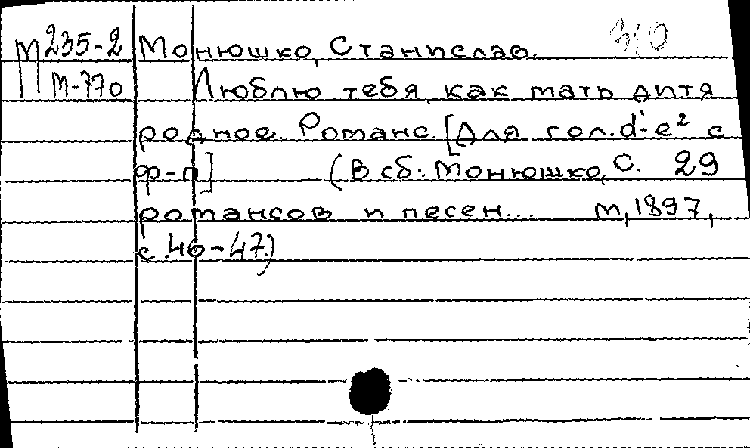 М 235-2 Монюшко, Станислав. 310
М-770 Люблю тебя, как мать дитя
родное. Романс. [Для гол. d¹-e² с
ф-п] (В сб: Монюшко, С. 29
романсов и песен... М, 1897,
с. 46-47.)